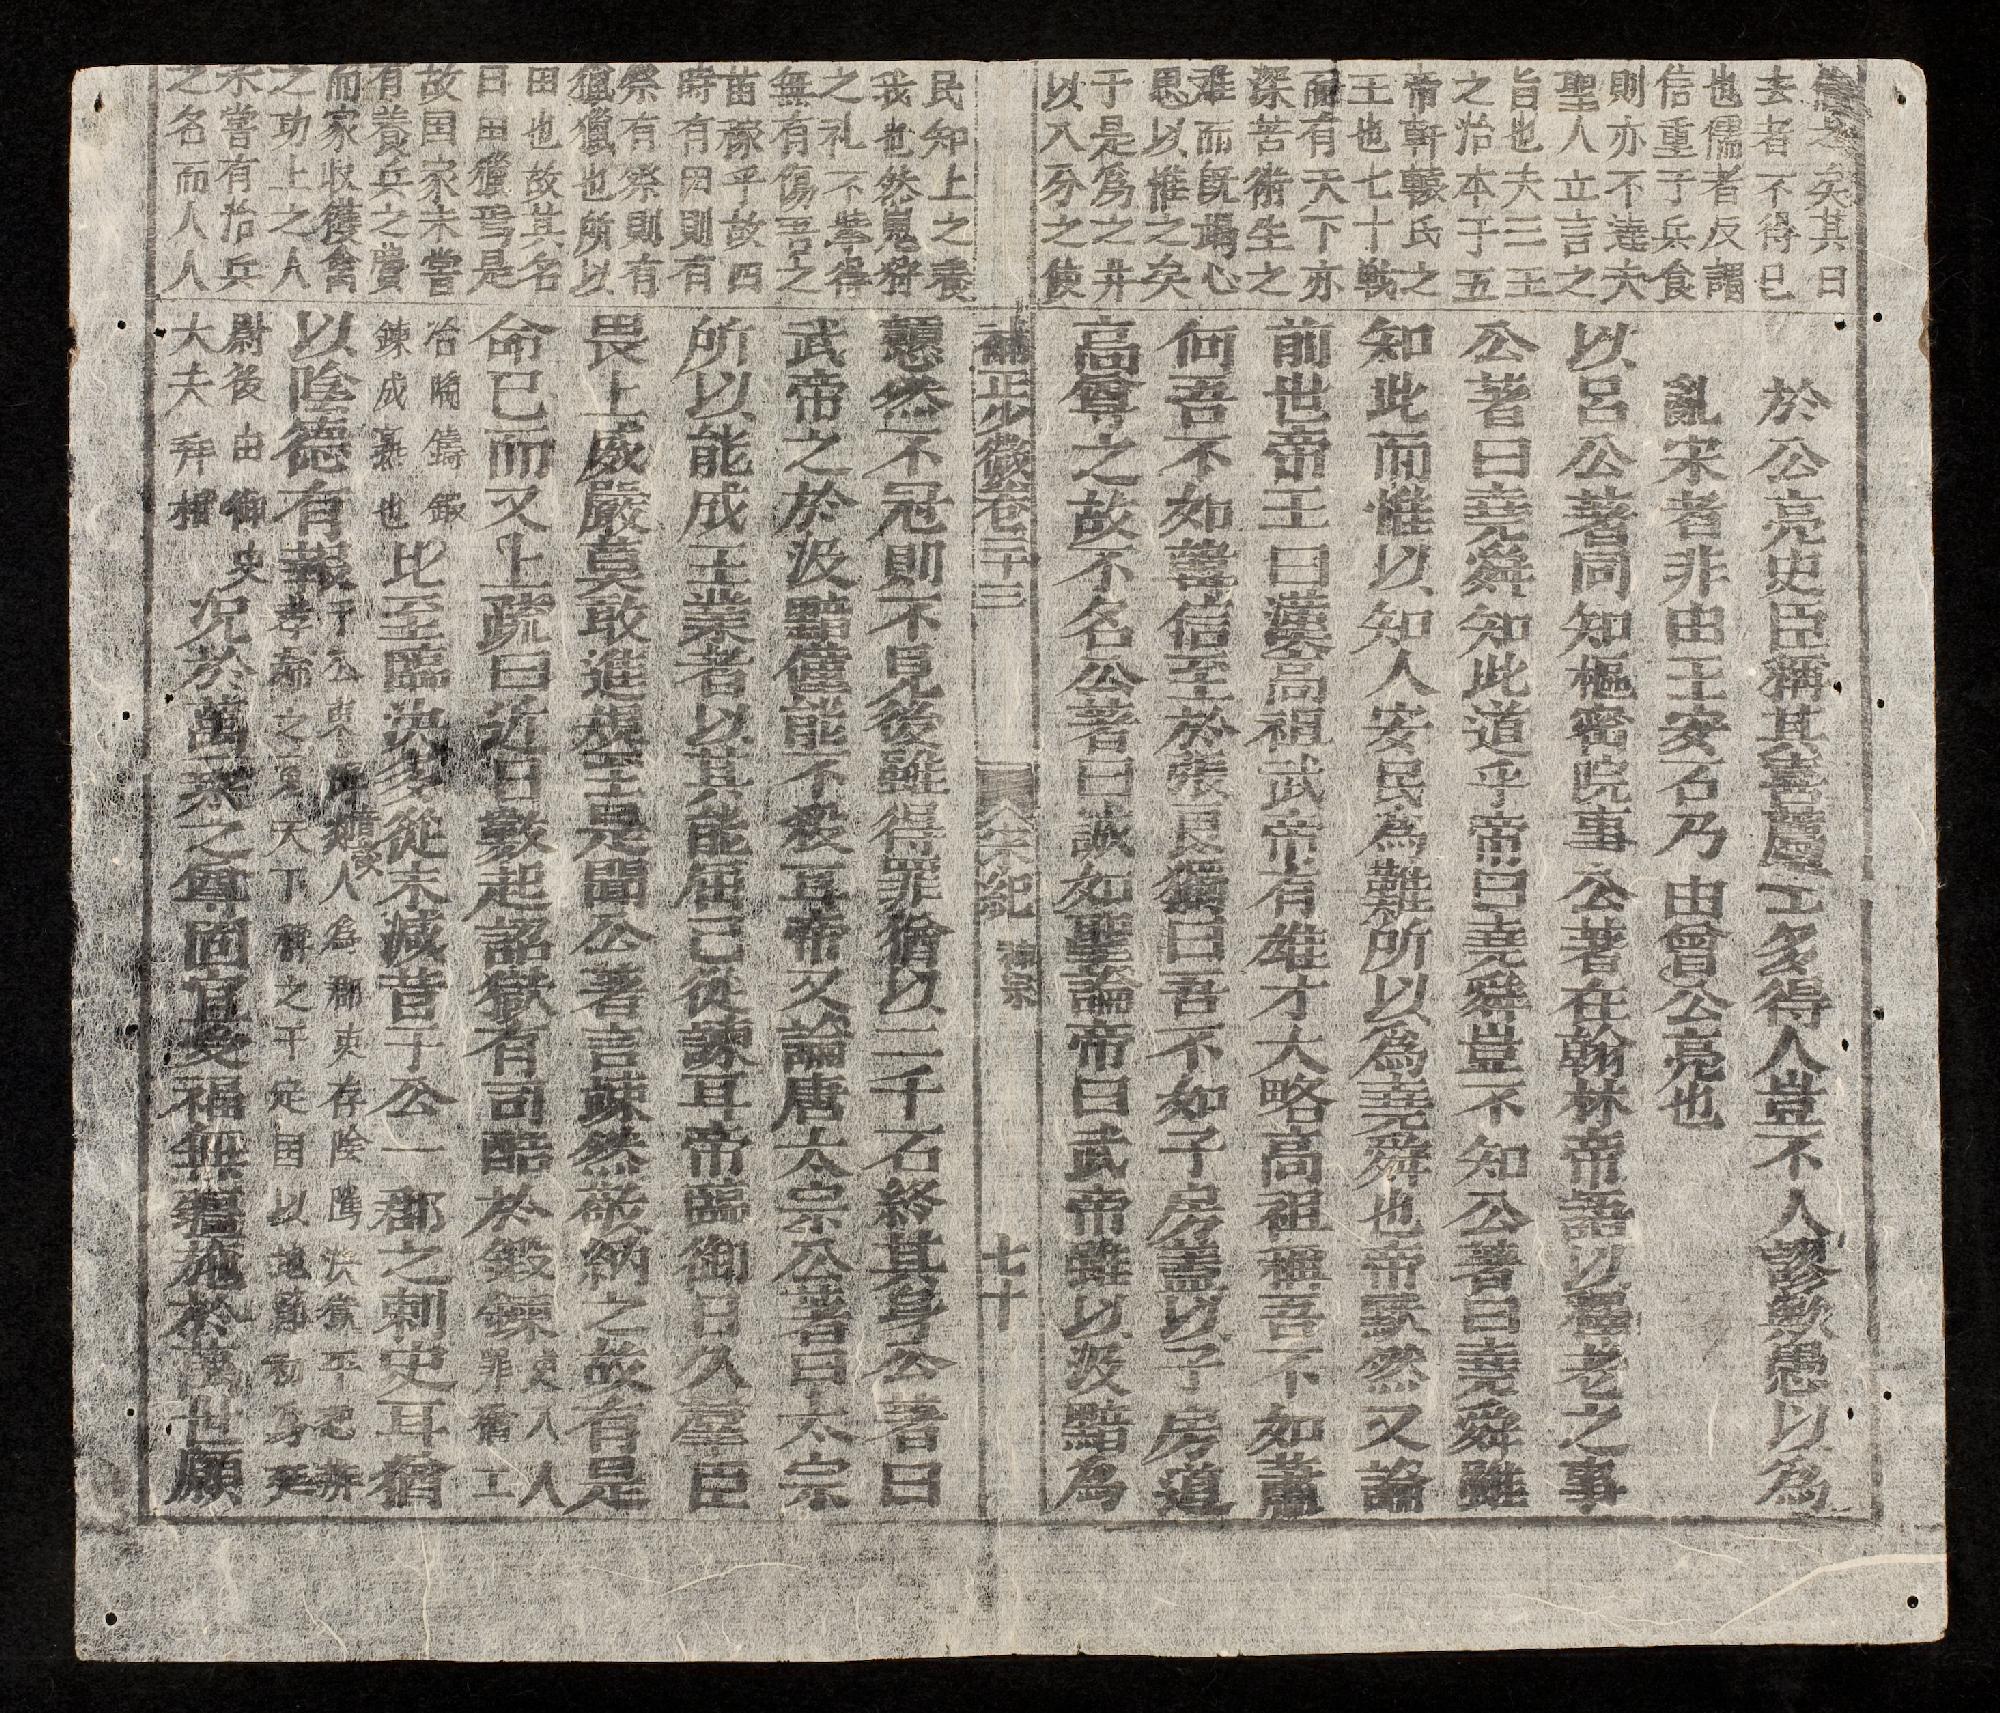 矣其曰
去者不得已
也儒者反謂
信重于兵食
則亦不達夫
聖人立言之
旨也夫三王
之治本于五
帝軒轅氏之
王也七十戦
而有天下亦
深苦衛生之
难而既竭心
思以惟之矣
于是為之井
以入分之使
於公亮史臣稱其善薦士多得人豈不人謬歟愚以為
亂宋者非由王安石乃由曾公亮也
以呂公著同知樞密院事公著在翰林帝語以釋老之事
公著曰堯舜知此道乎帝曰堯舜豈不知公著曰堯舜雖
知此而惟以知人安民為難所以為堯舜也帝默然又論
前世帝王曰漢高祖武帝有雄才大略高祖稱吾不如蕭
何吾不如韓信至於張良獨曰吾不如子房盖以子房道
高尊之故不名公著曰誠如聖論帝曰武帝雖以汲黯為
補正少微卷二十三 宋紀 神宗 七十
民知上之養
我也然蒐狩
之礼不舉得
無有傷吾之
苗稼乎故四
時有田則有
祭有祭則有
獵獵也所以
田也故其名
曰田獵焉是
故国家未嘗
有養兵之費
而家収獲禽
之功上之人
未嘗有治兵
之名而人人
戇然不冠則不見後雖得罪猶以二千石終其身公著曰
武帝之於汲黯僅能不殺耳帝又論唐太宗公著曰太宗
所以能成王業者以其能屈己從諫耳帝臨御日久羣臣
畏上威嚴莫敢進規至是聞公著言竦然敬納之故有是
命已而又上疏曰近日數起詔獄有司酷於鍛鍊吏入人
罪猶工
冶陶鑄鍛
鍊成熟也比至臨決多從末減昔于公一郡之刺史耳猶
以陰德有報于公東海郯人為郡吏存陰騭決獄平
孝婦之冤天下稱之于定国以地節初為廷
尉後由御史
大夫拜相況於萬乘之尊固宜受福無疆施於萬世願